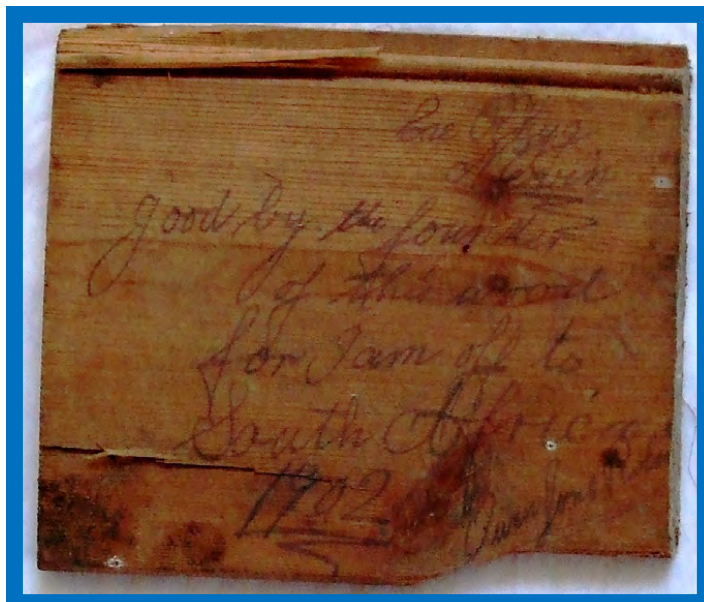 good by the founder
of this wood
for I am off to
South Africa
1902